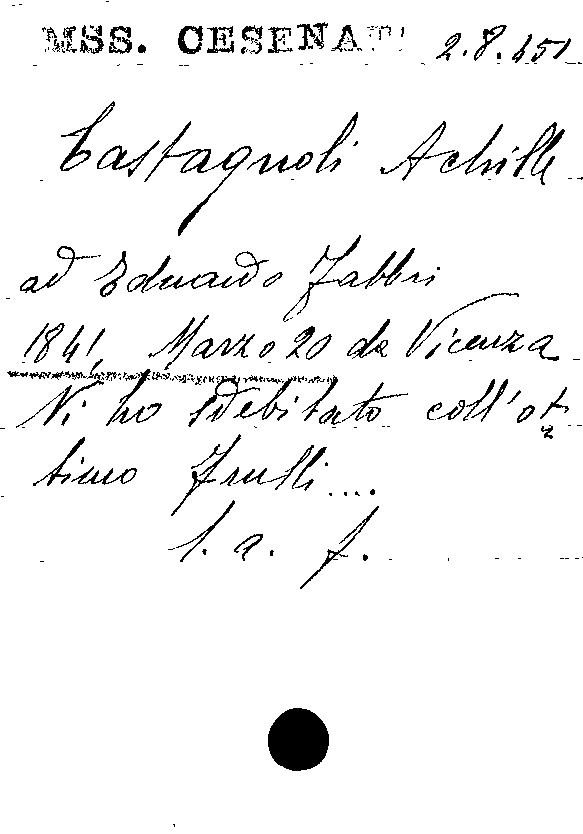 MSS. CESENAT 2.8.151
Castagnoli Achille
ad Eduardo Fabbri
1841, Marzo 20 da Vicenza
Vi ho sdebitato coll'ot
timo Frulli...
l. a. f.